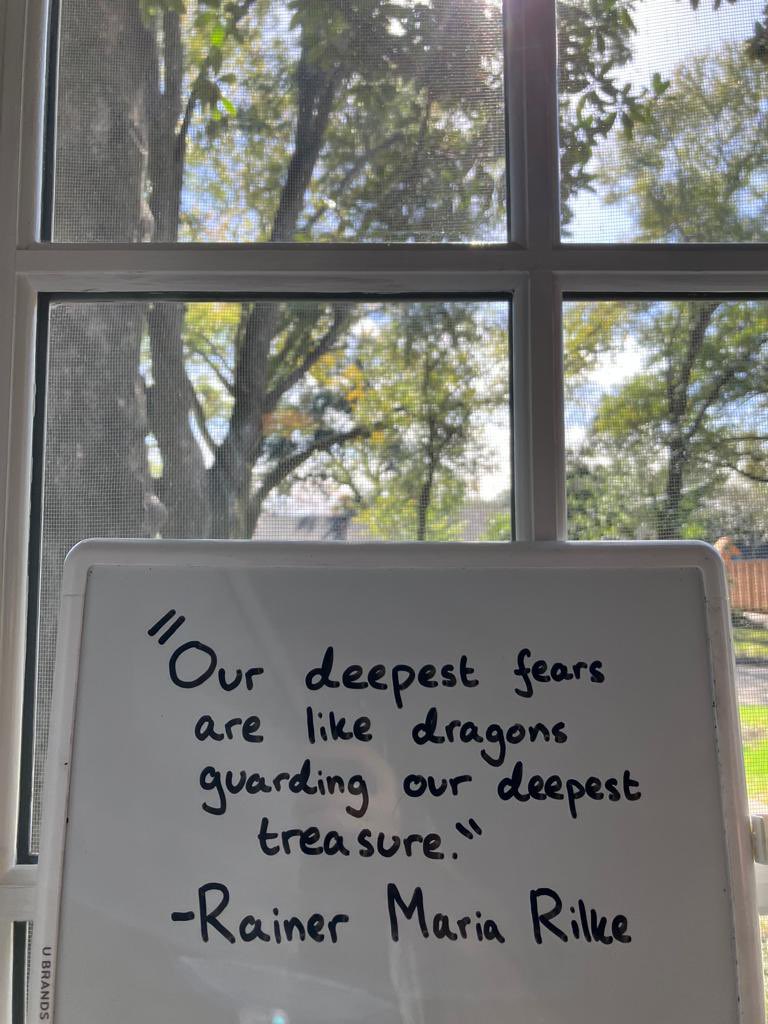 "Our deepest fears
are like dragons
guarding our deepest
treasure."
-Rainer Maria Rilke
U BRANDS